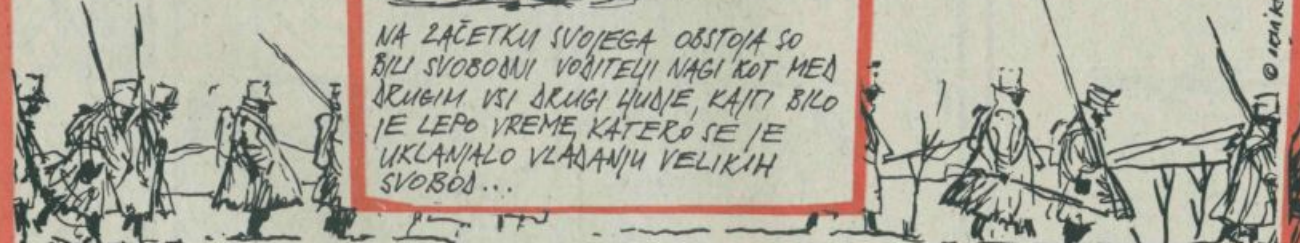 NA ZAČETKU SVOJEGA OBSTOJA SO
BILI SVOBODNI VODITELJI NAGI KOT MED
DRUGIM VSI DRUGI LJUDJE, KAJTI BILO
JE LEPO VREME, KATERO SE JE
UKLANJALO VLADANJU VELIKIH
SVOBOD...
©